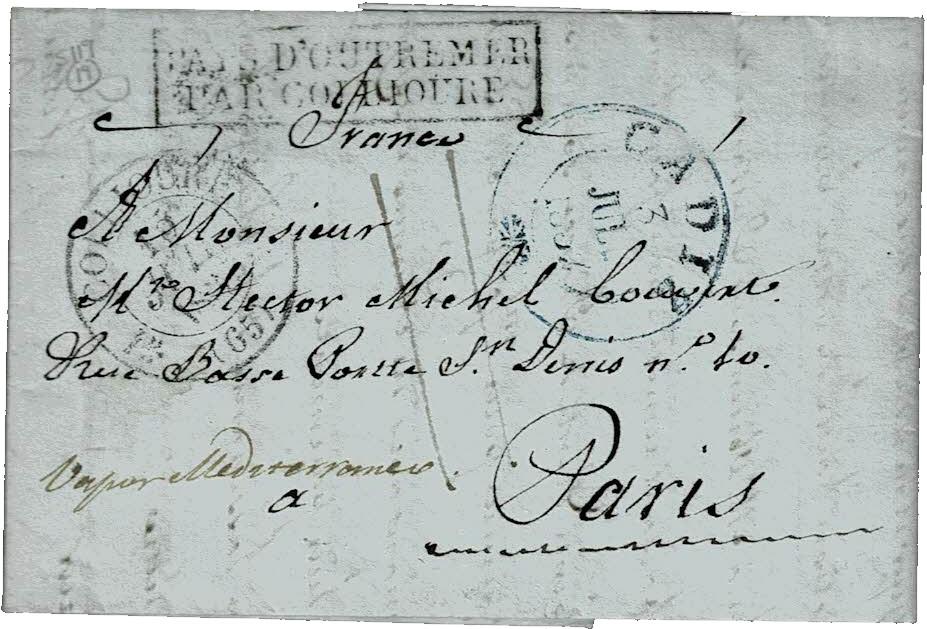 PAYS D'OUTREMER
PAR COLLIOURE
France
CADIZ
3
JUL.
A Monsieur
Mr. Hector Michel
Rue Basse Portte Sn. Denis nº. 40.
(65)
Vapor Mediterraneo.
a
Paris